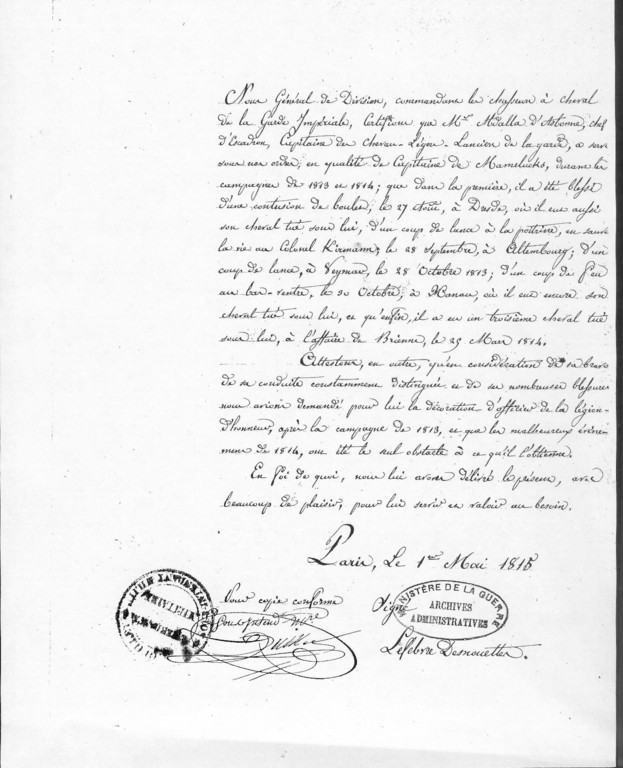 Nous Général de Division, commandant les chasseurs à cheval
de la Garde Impériale, Certifions que Mr. Abdalla d'Asbonne, chef
d'Escadron, Capitaine des Chevau-Légers-Lanciers de la garde, a servi
sous nos ordres, en qualité de Capitaine de Mamelucks, durant les
campagnes de 1813 et 1814; que dans la première, il a été blessé
d'une contusion de boulet, le 27 Août, à Dresde, où il eut aussi
son cheval tué sous lui, d'un coup de lance à la poitrine, en sauvant
la vie au Colonel Kirmann, le 28 Septembre, à Altembourg; d'un
coup de lance, à Veymar, le 28 Octobre 1813; d'un coup de feu
au bas-ventre, le 30 Octobre, à Hanau, où il eut encore son
cheval tué sous lui, et qu'enfin, il a eu un troisième cheval tué
sous lui, à l'affaire de Brienne, le 25 Mars 1814.
Attestons, en outre, qu'en considération de sa bravoure
de sa conduite constamment distinguée et de ses nombreuses blessures
nous avions demandé pour lui la décoration d'officier de la légion-
d'honneur, après la campagne de 1813, et que les malheureux évène-
mens de 1814, ont été le seul obstacle à ce qu'il l'obtienne.
En foi de quoi, nous lui avons délivré le présent, avec
beaucoup de plaisir, pour lui servir et valoir au besoin.
Paris, Le 1er Mai 1815
Pour copie conforme
Signé
MINISTÈRE DE LA GUERRE
ARCHIVES
ADMINISTRATIVES
Lefebvre Desnouettes.